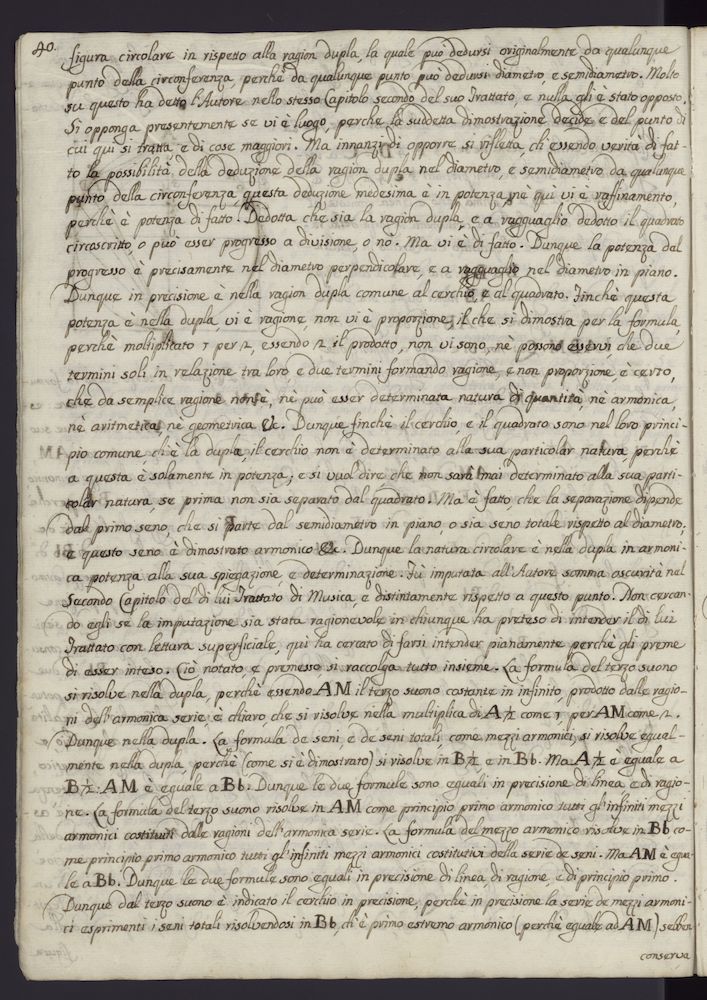 40.
figura circolare in rispetto alla ragion dupla, la quale può dedursi originalmente da qualunque
punto della circonferenza, perchè da qualunque punto può dedursi diametro, e semidiametro. Molto
su questo ha detto l'Autore nello stesso Capitolo secondo del suo Trattato, e nulla gli è stato opposto.
Si opponga presentemente se vi è luogo, perchè la suddetta dimostrazione decide e del punto di
cui qui si tratta e di cose maggiori. Ma innanzi di opporre si rifletta, ch'essendo verità di fat-
to la possibilità della deduzione della ragion dupla nel diametro, e semidiametro da qualunque
punto della circonferenza, questa deduzione medesima è in potenza, nè quì vi è raffinamento,
perchè è potenza di fatto. Dedotta che sia la ragion dupla, e a ragguaglio dedotto il quadrato
circoscritto, o può esser progresso a divisione, o nò. Ma vi è di fatto. Dunque la potenza dal
progresso è precisamente nel diametro perpendicolare, e a ragguaglio nel diametro in piano.
Dunque in precisione è nella ragion dupla comune al cerchio, e al quadrato. Finchè questa
potenza è nella dupla, vi è ragione, non vi è proporzione, il che si dimostra per la formula,
perchè moltiplicato 1 per 2, essendo 2 il prodotto, non vi sono, nè possono esservi, che due
termini soli in relazione tra loro, e due termini formando ragione, e non proporzione è certo,
che da semplice ragione non è, nè può esser determinata natura di quantità, nè armonica,
nè aritmetica, nè geometrica &c. Dunque finchè il cerchio, e il quadrato sono nel loro princi-
pio comune, ch'è la dupla, il cerchio non è determinato alla sua particolar natura, perchè
a questa è solamente in potenza; e si vuol dire che non sarà mai determinato alla sua parti-
colar natura, se prima non sia separato dal quadrato. Ma è fatto, che la separazione dipende
dal primo seno, che si parte dal semidiametro in piano, o sia seno totale rispetto al diametro,
e questo seno è dimostrato armonico &c. Dunque la natura circolare è nella dupla in armoni-
ca potenza alla sua spiegazione, e determinazione. Fù imputata all'Autore somma oscurità nel
Secondo Capitolo del di lui Trattato di Musica, e distintamente rispetto a questo punto. Non cercan-
do egli se la imputazione sia stata ragionevole in chiunque ha preteso di intender il di lui
Trattato con lettura superficiale, quì ha cercato di farsi intender pianamente perchè gli preme
di esser inteso. Ciò notato, e premesso, si raccolga tutto insieme. La formula del terzo suono
si risolve nella dupla, perchè essendo AM il terzo suono costante in infinito, prodotto dalle ragio-
ni dell'armonica serie, è chiaro, che si risolve nella multiplica di A½ come 1 per AM come 2.
Dunque nella dupla. La formula de seni, e de seni totali, come mezzi armonici, si risolve egual-
mente nella dupla, perchè (come si è dimostrato) si risolve in B½ e in Bb. Ma A½ è eguale a
B½: AM è eguale a Bb. Dunque le due formule sono eguali in precisione di linea e di ragio-
ne. La formula del terzo suono risolve in AM come principio primo armonico tutti gl'infiniti mezzi
armonici costituiti dalle ragioni dell'armonica serie. La formula del mezzo armonico risolve in Bb co-
me principio primo armonico tutti gl'infiniti mezzi armonici costitutivi della serie de seni. Ma AM è egua-
le a Bb. Dunque le due formule sono eguali in precisione di linea, di ragione, e di principio primo.
Dunque dal terzo suono è indicato il cerchio in precisione, perchè in precisione la serie de mezzi armoni-
ci esprimenti i seni totali risolvendosi in Bb, ch'è primo estremo armonico (perchè eguale ad AM) sebben
conserva